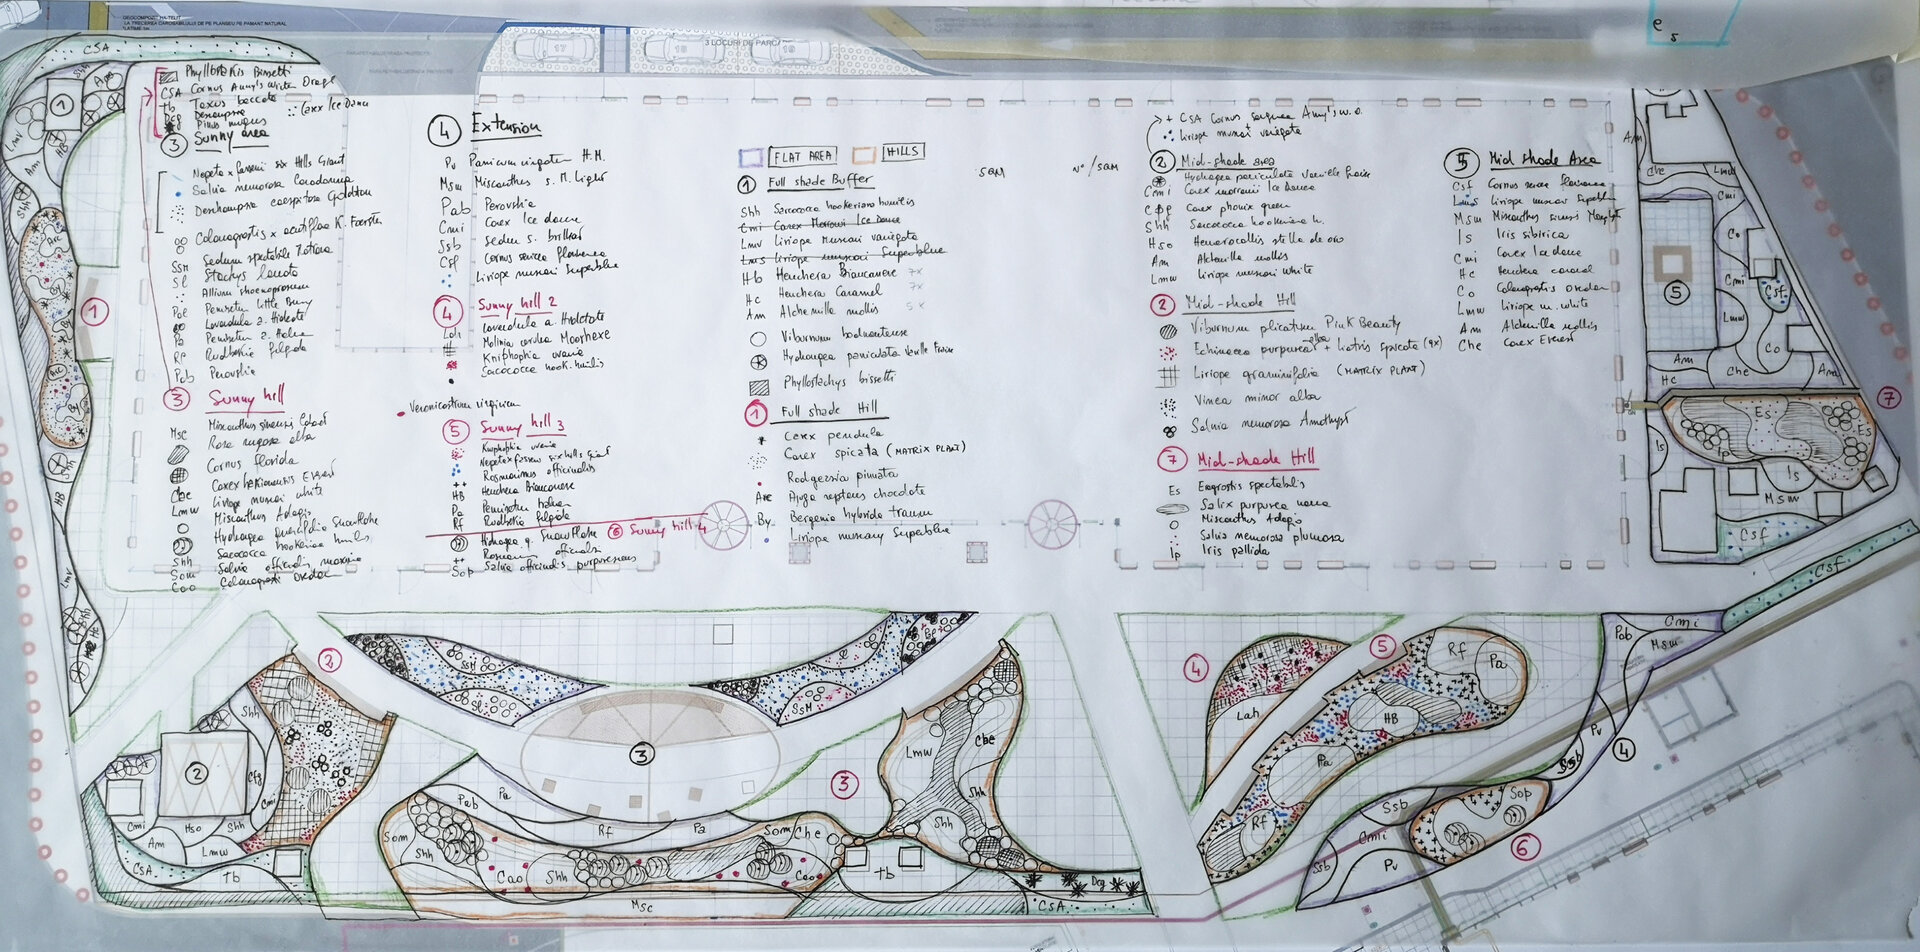 GEOCOMPOZIT HATELIT
LA TRECEREA CAROSABILULUI DE PE PLANSEU PE PAMANT NATURAL
17
18
3 LOCURI DE PARC
19
e
5
CSA
Phyllostachis Bissetti
CSA Cornus
Tb Taxus baccata
Dcg Deschampsia
∴ Carex Ice Dance
Pinus mugus
③ Sunny area
Nepeta x faseni six Hills Giant
Salvia nemorosa Caradonna
Deschampsia caespitosa Goldtau
Calamagrostis x acutiflora K. Foerster
SSM Sedum spectabile
Sl Stachys lanata
Allium shoenoprasum
Pae Penisetum Little Bunny
Lavandula a. Hidcote
Pa Penisetum a. Hameln
Rf Rudbekia fulgida
Pab Perovskia
③ Sunny hill
Msc Miscanthus sinensis
Rosa rugosa alba
Cornus florida
Che Carex
Lmw Liriope muscari white
Miscanthus Adagio
Hydrangea
Shh Sarcococca hookeriana humilis
Som Salvia officinalis
Cao Calamagrostis Overdam
④ Extension
Pv Panicum virgatum H.M.
Msm Miscanthus s. M. Light
Pab Perovskia
Cmi Carex Ice dance
Ssb Sedum s. brilliant
Csf Cornus sericea
Liriope muscari Superblue
④ Sunny hill 2
Lah Lavandula a. Hidcote
Molinia cerulea Moorhexe
Kniphophia uvaria
Sarcococca hook. humilis
Veronicastrum virginicum
⑤ Sunny hill 3
Kniphophia uvaria
Nepeta x faseni six hills giant
Rosmarinus officinalis
HB Heuchera Biancanere
Pa Penisetum hameln
Rf Rudbekia fulgida
⑥ Sunny hill 4
Hidragea q. Snow Flake
Rosmarin officinalis
Sop Salvia officinalis purpurescens
FLAT AREA
HILLS
① Full shade Buffer
SQM
N°/SQM
Shh Sarcococca hookeriana humilis
Cmi Carex Morrowi Ice Dance
Lmv Liriope Muscari variegata
Lms Liriope muscari Superblue
Hb Heuchera Biancanere 7x
Hc Heuchera Caramel 7x
Am Alchemilla mollis 5x
Viburnum bodnantense
Hydrangea paniculata Vanille Fraise
Phyllostachys bissetti
① Full shade Hill
Carex pendula
Carex spicata (MATRIX PLANT)
Rodgersia pinnata
Arc Ajuga reptans chocolate
By Bergenia hybrida
Liriope muscary Superblue
+ CSA Cornus Amy's W.O.
Liriope muscari variegata
② Mid-shade area
Hydragea paniculata Vanille Fraise
Cmi Carex morrowi Ice Dance
Carex phoenix green
Shh Sarcococca hookeriana h.
Hso Hemerocallis stella de oro
Am Alchemilla mollis
Lmw Liriope muscari white
② Mid-shade Hill
Viburnum plicatum Pink Beauty
Echinacea purpurea alba + Liatris spicata (9x)
Liriope graminifolia (MATRIX PLANT)
Vinca minor alba
Salvia nemorosa Amethyst
⑦ Mid-shade Hill
Es Eragrostis spectabilis
Salix purpurea nana
Miscanthus Adagio
Salvia nemorosa plumosa
Ip Iris pallida
⑤ Mid shade Area
Csf Cornus
Lms Liriope muscari Superblue
Msm Miscanthus sinensis
Is Iris sibirica
Cmi Carex Ice dance
Hc Heuchera caramel
Co Calamagrostis Overdam
Lmw Liriope m. white
Am Alchemilla mollis
Che Carex Everest
Shh
Am
①
Lmv
HB
Am
Shh
Arc
By
①
Arc
By
Shh
HB
Lmv
Shh
Hc
Am
Che
Lmw
Cmi
Co
Cmi
Csf
⑤
Lmw
Co
Am
Che
Ama
Hc
⑦
Es
Es
Ip
Is
Is
Msm
Csf
Csf
②
SSM
Sl
③
SSM
Shh
②
Cfg
Cmi
Cmi
Hso
Shh
Am
Lmw
CSA
Tb
Pab
Pa
Rf
Pa
③
Som
Shh
Cao
Shh
Som
Che
Cao
Msc
Lmw
Che
Shh
Shh
Tb
Dcg
CSA
④
Lah
⑤
Rf
Pa
HB
Pa
Rf
Pab
Cmi
Msm
④
Pv
Ssb
Ssb
Sop
Cmi
Ssb
Pv
⑥